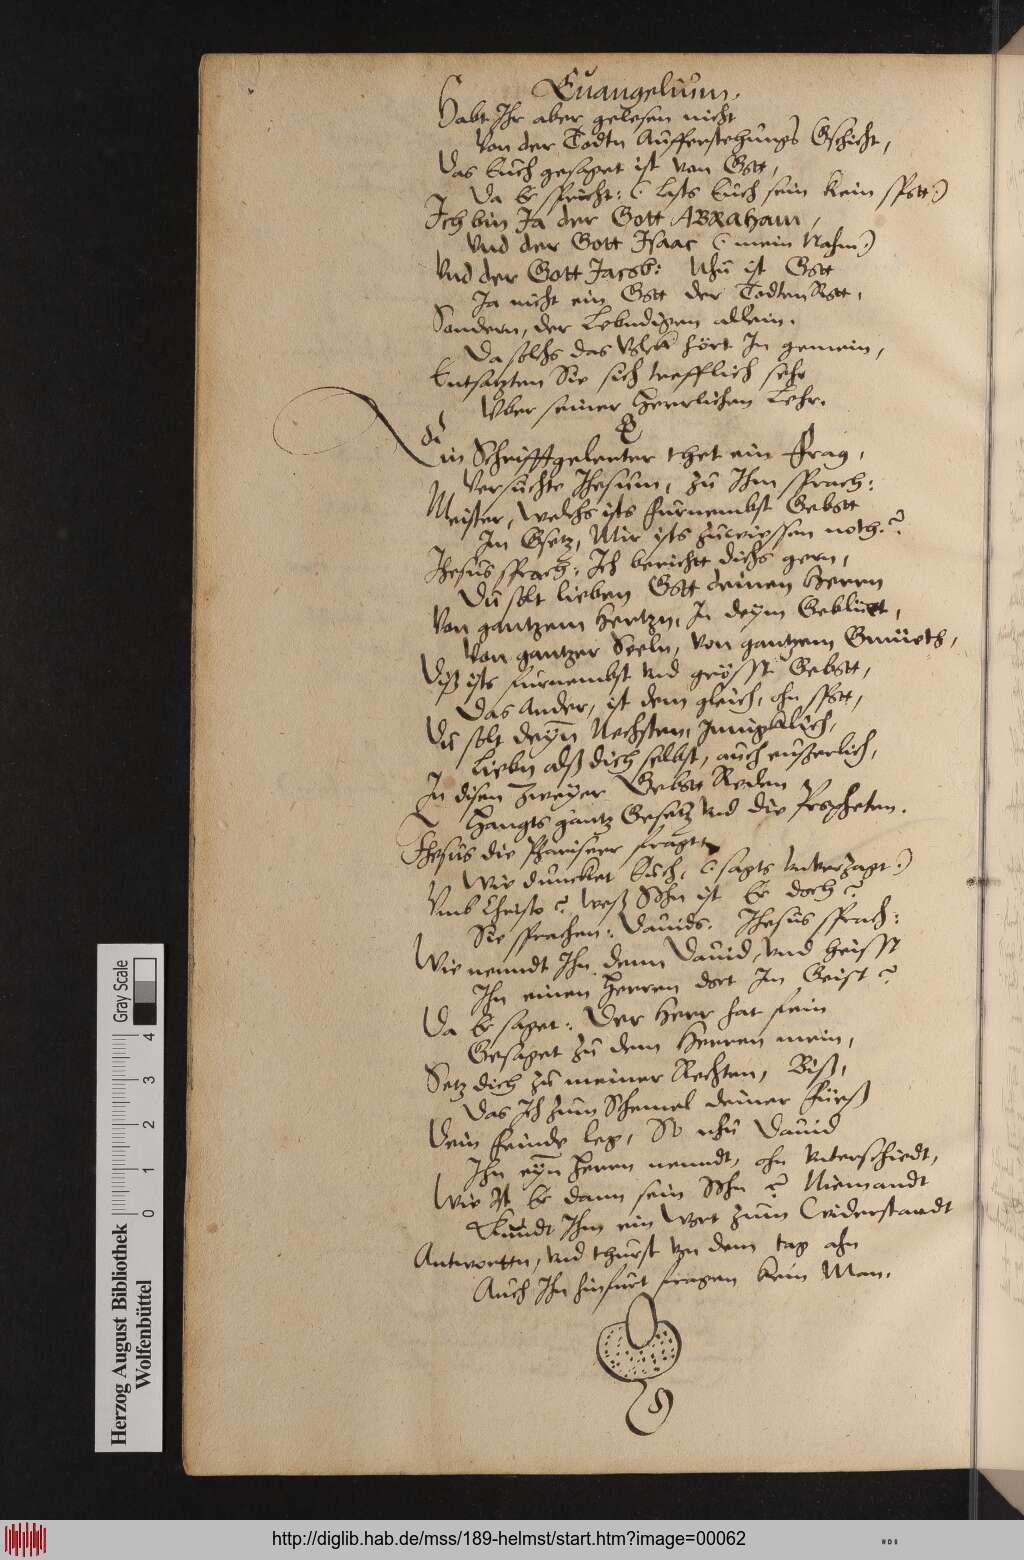 Euangelium.
Habt Ihr aber gelesen nicht
Von der Todtn Aufferstehungs Gschicht,
Das Euch gesaget ist von Gott,
Da Er spricht: (lasts Euch sein kein spott)
Ich bin Ja der Gott ABRaham,
Vnd der Gott Isaac (mein Nahm)
Vnd der Gott Jacob: Nhu ist Gott
Ja nicht ein Gott der Todten Rott,
Sondern, der Lebndigen allein.
Da solchs das Volck hört In gemein,
Entsatzten Sie sich trefflich sehr
Vber seiner Herrlichen Lehr.
Ein Schrifftgelerter thet ein Frag,
Versuchte Jhesum, zu Ihm sprach:
Meister, welchs ists furnembst Gebott
Im Gsetz, Mir ists zuwissen noth?
Jhesus sprach: Ich bericht dichs gern,
Du solt lieben Gott deinen Herrn
Von gantzem Hertzn, In deym Geblüet,
Von gantzer Seeln, von gantzem Gmüeth,
Diß ists furnembst vnd gröste Gebott,
Das Ander, ist dem gleich, ohn spott,
Du solt deyn Nechsten, Inniglich,
Liebn alß dich selbst, auch eußerlich,
In disen zweyer Gebott Reden
Hangts gantz Gesetz vnd die Propheten.
Jhesus die Phariseer fragtt
Wie duncket Euch, (sagts vnverzagt)
Vmb Christo? Weß Sohn ist Er doch?
Sie sprachen: Dauids. Jhesus sprach:
Wie nenndt Ihn denn Dauid, vnd heisst
Ihn einen Herren dort Im Geist?
Da Er saget: Der Herr hat fein
Gesaget zu dem Herren mein,
Setz dich zu meiner Rechten, Biß,
Das Ich zum Schemel deiner Füeß
Dein Feinde leg, So nhu Dauid
Ihn eyn Herrn nenndt, ohn vnterschiedt,
Wie ist Er dann sein Sohn? Niemandt
Kundt Ihm ein Wort zum Widerstandt
Antworttn, vnd thurst von dem tag ahn
Auch Ihn hinfurt fragen kein Man.
Gray Scale
0 1 2 3 4
Herzog August Bibliothek
Wolfenbüttel
http://diglib.hab.de/mss/189-helmst/start.htm?image=00062